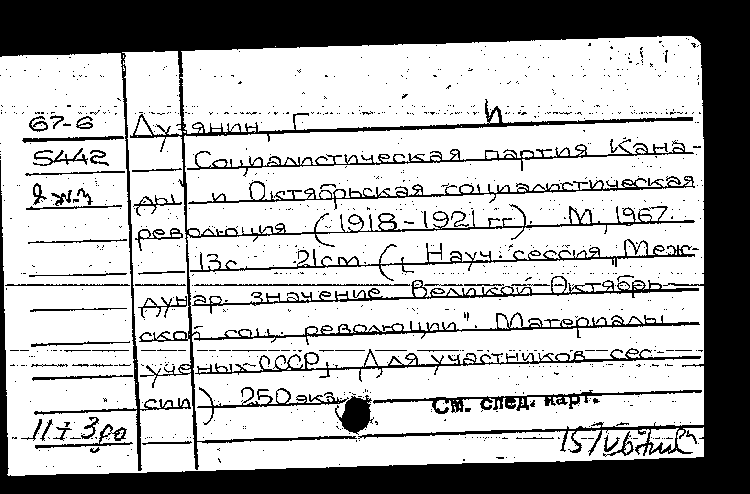 67-6 Лузянин, Г. И
5442 Социалистическая партия Кана-
2 экз ды и Октябрьская социалистическая
революция (1918-1921 гг). М., 1967.
13с. 21см. ([Науч. сессия „Меж-
дунар. значение Великой Октябрь-
ской соц. революции". Материалы
ученых СССР]. Для участников сес-
сии). 250 экз.
См. след. карт.
11+3